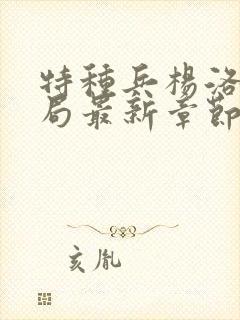 特種兵楊洛
局最新章節
亥胤